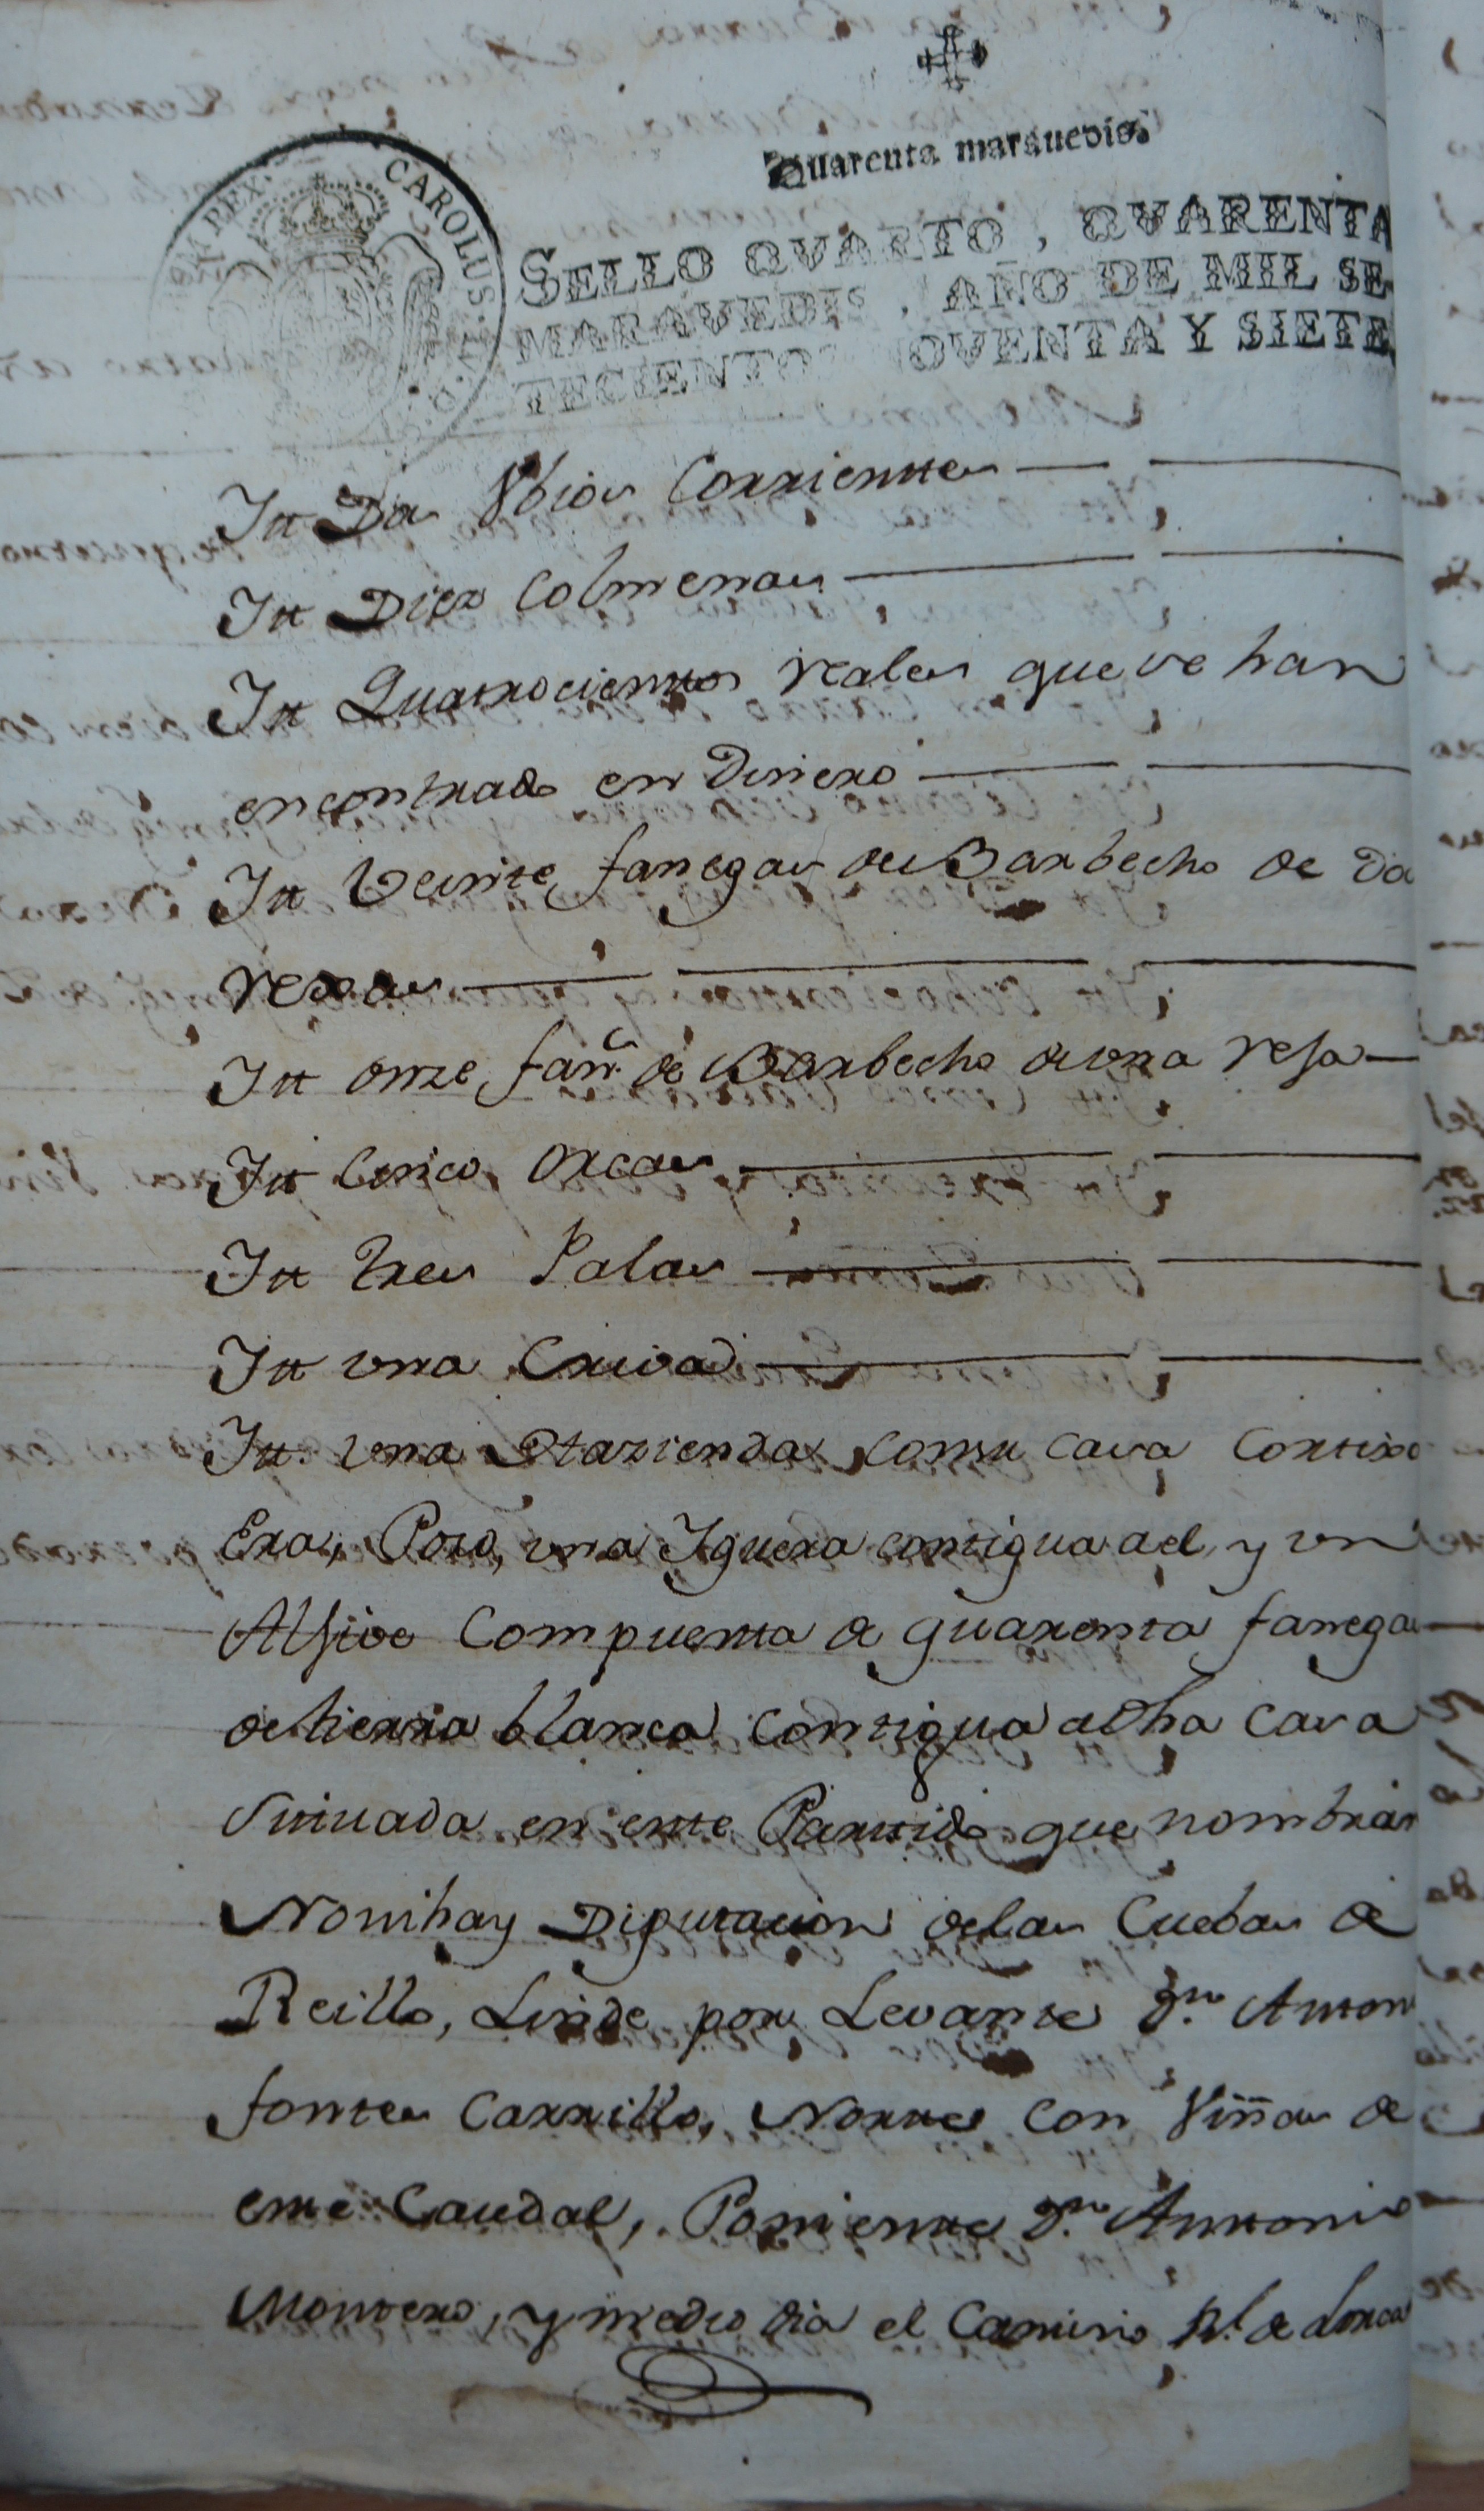 Quarenta marauedis.
CAROLUS IV D G HISPANIARUM REX
SELLO QVARTO, QVARENTA
MARAVEDIS, AÑO DE MIL SE-
TECIENTOS NOVENTA Y SIETE
Itt Dos Vbios Corrienttes
Itt Diez Colmenas
Itt Quatrocienttos reales que se han
encontrado en Dinero
Itt Veinte fanegas de Barbecho de Dos
rexas
Itt onze fan.s de Barbecho de una reja
Itt Cinco orcas
Itt tres Palas
Itt una Criva
Itt una Hazienda con su casa Cortixo
Era, Pozo, una Iguera contigua a el, y un
Aljive Compuesta de quarenta fanegas
de tierra blanca contigua a dha Casa
Situada en este Partido que nombran
Diputacion de las Cuebas de
Reillo, Linde por Levante D.n Anton
fontes Carrillo, Norte con Viñas de
este Caudal, Poniente D.n Anttonio
Montero, y medio dia el Camino Rl. de Lorca